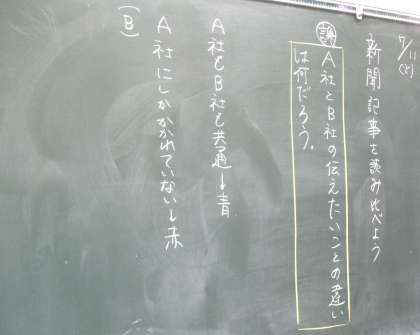 7/11(火)
新聞記事を読み比べよう
課 A社とB社の伝えたいことの違い
は何だろう。
A社もB社も共通→青
A社にしかかかれていない→赤
(B)